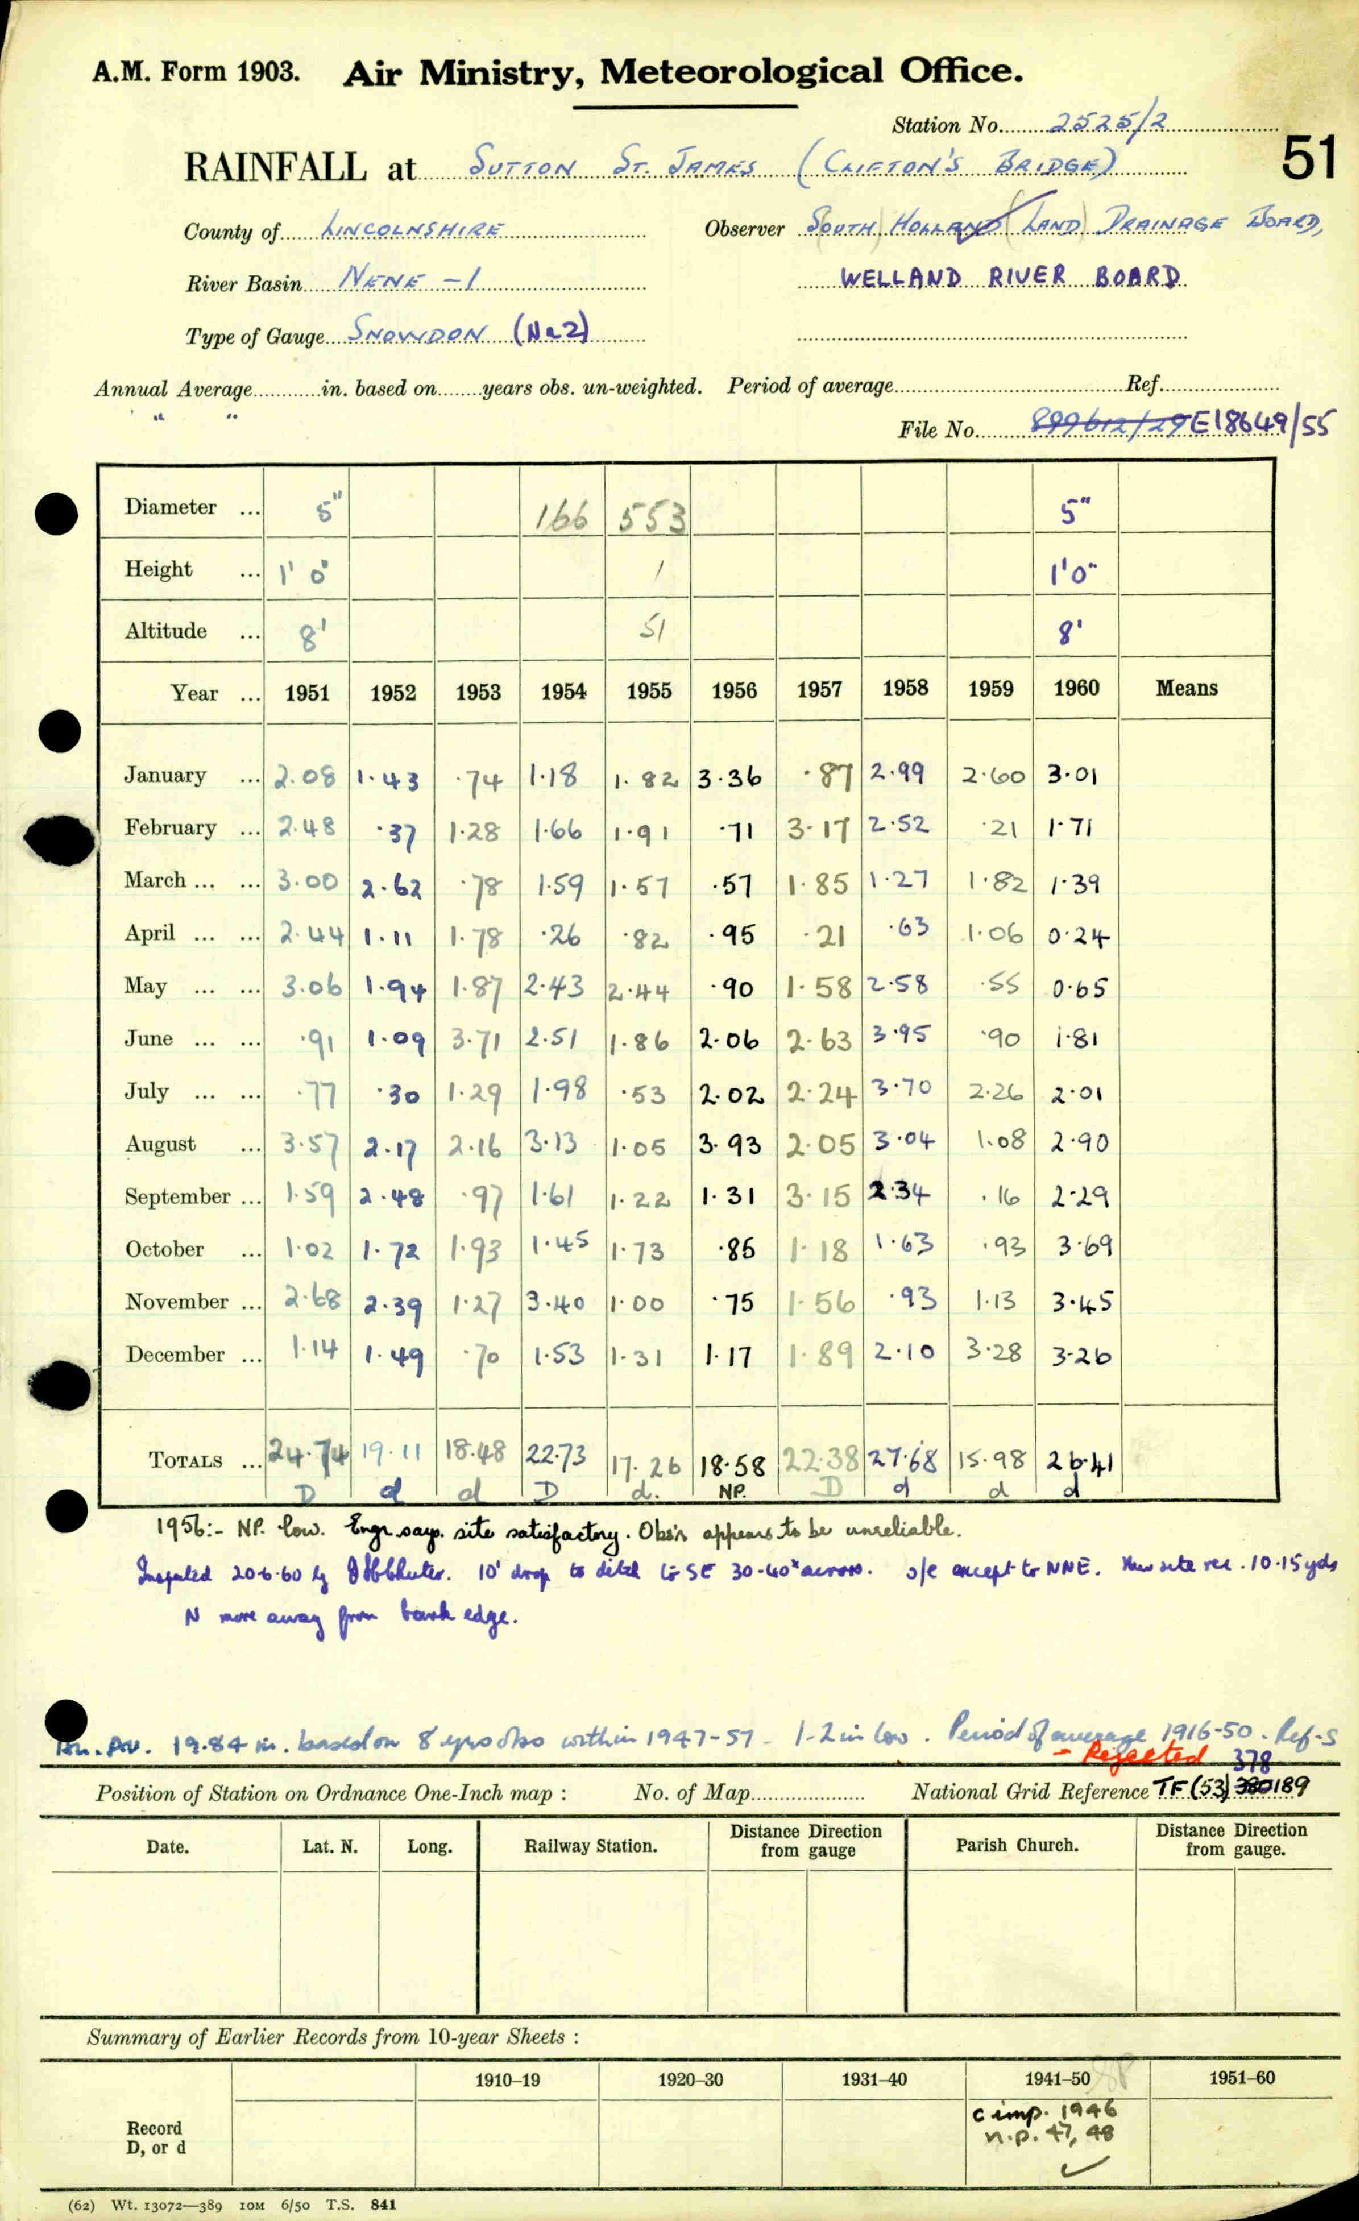 A.M. Form 1903. Air Ministry, Meteorological Office.
Station No. 2525/2
51
RAINFALL at SUTTON ST. JAMES (CLIFTON'S BRIDGE)
County of LINCOLNSHIRE Observer (SOUTH) HOLLAND (LAND) DRAINAGE BOARD,
River Basin NENE -1 WELLAND RIVER BOARD
Type of Gauge SNOWDON (No 2)
Annual Average in. based on years obs. un-weighted. Period of average Ref.
" "
File No. 899612/29 E18649/55
Diameter ... 5" 166 553 5"
Height ... 1' 0" 1 1'0"
Altitude ... 8' 51 8'
Year ... 1951 1952 1953 1954 1955 1956 1957 1958 1959 1960 Means
January ... 2.08 1.43 .74 1.18 1.82 3.36 .87 2.99 2.60 3.01
February ... 2.48 .37 1.28 1.66 1.91 .71 3.17 2.52 .21 1.71
March ... ... 3.00 2.62 .78 1.59 1.57 .57 1.85 1.27 1.82 1.39
April ... ... 2.44 1.11 1.78 .26 .82 .95 .21 .63 1.06 0.24
May ... ... 3.06 1.94 1.87 2.43 2.44 .90 1.58 2.58 .55 0.65
June ... ... .91 1.09 3.71 2.51 1.86 2.06 2.63 3.95 .90 1.81
July ... ... .77 .30 1.29 1.98 .53 2.02 2.24 3.70 2.26 2.01
August ... 3.57 2.17 2.16 3.13 1.05 3.93 2.05 3.04 1.08 2.90
September ... 1.59 2.48 .97 1.61 1.22 1.31 3.15 2.34 .16 2.29
October ... 1.02 1.72 1.93 1.45 1.73 .85 1.18 1.63 .93 3.69
November ... 2.68 2.39 1.27 3.40 1.00 .75 1.56 .93 1.13 3.45
December ... 1.14 1.49 .70 1.53 1.31 1.17 1.89 2.10 3.28 3.26
TOTALS ... 24.74 19.11 18.48 22.73 17.26 18.58 22.38 27.68 15.98 26.41
D d d D d. NP. D d d d
1956:- NP. low. Engr. says. site satisfactory. Obs'n appears to be unreliable.
Inspected 20.6.60 by 10' drop to ditch to SE 30-40° across. o/e except to NNE. New site rec. 10-15 yds
N more away from bank edge.
Ann. Av. 19.84 in. based on 8 yrs obs within 1947-57. 1-2 in low. Period of average 1916-50. Ref-S
- Rejected 378
Position of Station on Ordnance One-Inch map : No. of Map National Grid Reference TF (53) 380189
Date. Lat. N. Long. Railway Station. Distance from Direction gauge Parish Church. Distance from Direction gauge.
Summary of Earlier Records from 10-year Sheets :
1910–19 1920–30 1931–40 1941–50 1951–60
Record D, or d c imp. 1946
n.p. 47, 48
(62) Wt. 13072—389 10M 6/50 T.S. 841